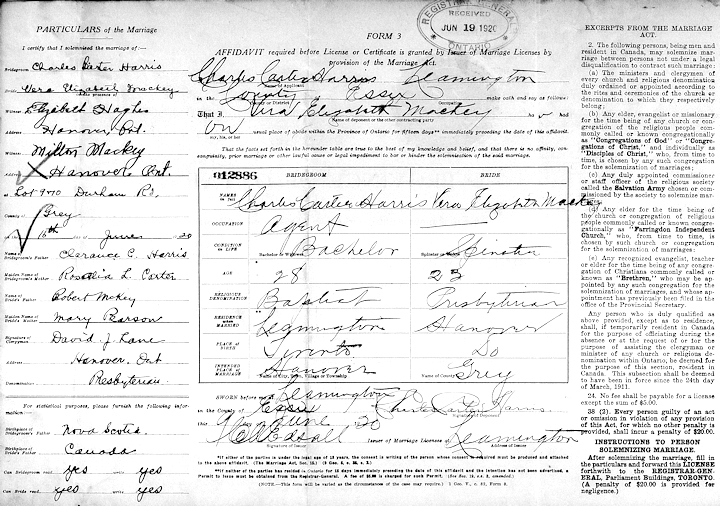 PARTICULARS of the Marriage
I certify that I solemnized the marriage of:—
Bridegroom Charles Carter Harris
Bride Vera Elizabeth Mackey
Witness Elizabeth Hughes
Address Hanover, Ont.
Witness Milton Mackey
Address Hanover Ont
at Lot 9+70 Durham Rd
County of Grey
16th June 20
Name of Groom's Father Clarance C. Harris
Maiden Name of Groom's Mother Rosetta L. Carter
Name of Bride's Father Robert McKey
Maiden Name of Bride's Mother Mary Pearson
Signature of Clergyman David J. Lane
Address Hanover, Ont
Denomination Presbyterian
For statistical purposes, please furnish the following information—
Birthplace of Groom's Father Nova Scotia
Birthplace of Bride's Father Canada
Can Bridegroom read yes write yes
Can Bride read yes write yes
REGISTRAR GENERAL
RECEIVED
JUN 19 1920
ONTARIO
FORM 3
AFFIDAVIT required before License or Certificate is granted by Issuer of Marriage Licenses by
provision of the Marriage Act.
Charles Carter Harris Leamington
in the County of Essex make oath and say as follows:
That I Vera Elizabeth Mackey
Name of deponent or the other contracting party
usual place of abode within the Province of Ontario for fifteen days immediately preceding the date of this affidavit.
That the facts set forth in the hereunder table are true to the best of my knowledge and belief, and that there is no affinity, consanguinity, prior marriage or other lawful cause or legal impediment to bar or hinder the solemnization of the said marriage.
012886 BRIDEGROOM BRIDE
NAMES in full Charles Carter Harris Vera Elizabeth Mackey
OCCUPATION Agent
CONDITION IN LIFE Bachelor Spinster
AGE 28 23
RELIGIOUS DENOMINATION Baptist Presbyterian
RESIDENCE when MARRIED Leamington Hanover
PLACE OF BIRTH Toronto Do
INTENDED PLACE OF MARRIAGE Hanover Grey
Name of City, Town, Village or Township Name of County
SWORN before me at Leamington
in the County of Essex Charles Carter Harris
June 20 Signature of Deponent
Issuer of Marriage Licenses Leamington
Signature of Issuer
*If either of the parties is under the legal age of 18 years, the consent in writing of the person whose consent is required must be produced and attached to the above affidavit. (The Marriage Act, Sec. 15.)
**If neither of the parties has resided in Ontario for 15 days immediately preceding the date of this affidavit and the intention has not been advertised, a Permit to issue must be obtained from the Registrar-General. A fee of $5.00 is charged for such Permit.
(NOTE.—This form will be varied as the circumstances of the case may require.)
EXCERPTS FROM THE MARRIAGE ACT.
2. The following persons, being men and resident in Canada, may solemnize marriage between persons not under a legal disqualification to contract such marriage:
(a) The ministers and clergymen of every church and religious denomination duly ordained or appointed according to the rites and ceremonies of the church or denomination to which they respectively belong;
(b) Any elder, evangelist or missionary for the time being of any church or congregation of the religious people commonly called or known congregationally as "Congregations of God" or "Congregations of Christ," and individually as "Disciples of Christ," who, from time to time, is chosen by any such congregation for the solemnization of marriages;
(c) Any duly appointed commissioner or staff officer of the religious society called the Salvation Army chosen or commissioned by the society to solemnize marriages;
(d) Any elder for the time being of the church or congregation of religious people commonly called or known congregationally as "Farringdon Independent Church," who, from time to time, is chosen by such church or congregation for the solemnization of marriages;
(e) Any recognized evangelist, teacher or elder for the time being of any congregation of Christians commonly called or known as "Brethren," who may be appointed by any such congregation for the solemnization of marriages, and whose appointment has previously been filed in the office of the Provincial Secretary.
Any person who is duly qualified as above provided, except as to residence, shall, if temporarily resident in Canada for the purpose of officiating during the absence or at the request of or for the purpose of assisting the clergyman or minister of any church or religious denomination within Ontario, be deemed for the purpose of this section, resident in Canada. This subsection shall be deemed to have been in force since the 24th day of March, 1911.
24. No fee shall be payable for a license except the sum of $5.00.
38 (2). Every person guilty of an act or omission in violation of any provision of this Act, for which no other penalty is provided, shall incur a penalty of $20.00.
INSTRUCTIONS TO PERSON SOLEMNIZING MARRIAGE.
After solemnizing the marriage, fill in the particulars and forward this LICENSE forthwith to the REGISTRAR-GENERAL, Parliament Buildings, TORONTO.
(A penalty of $20.00 is provided for negligence.)